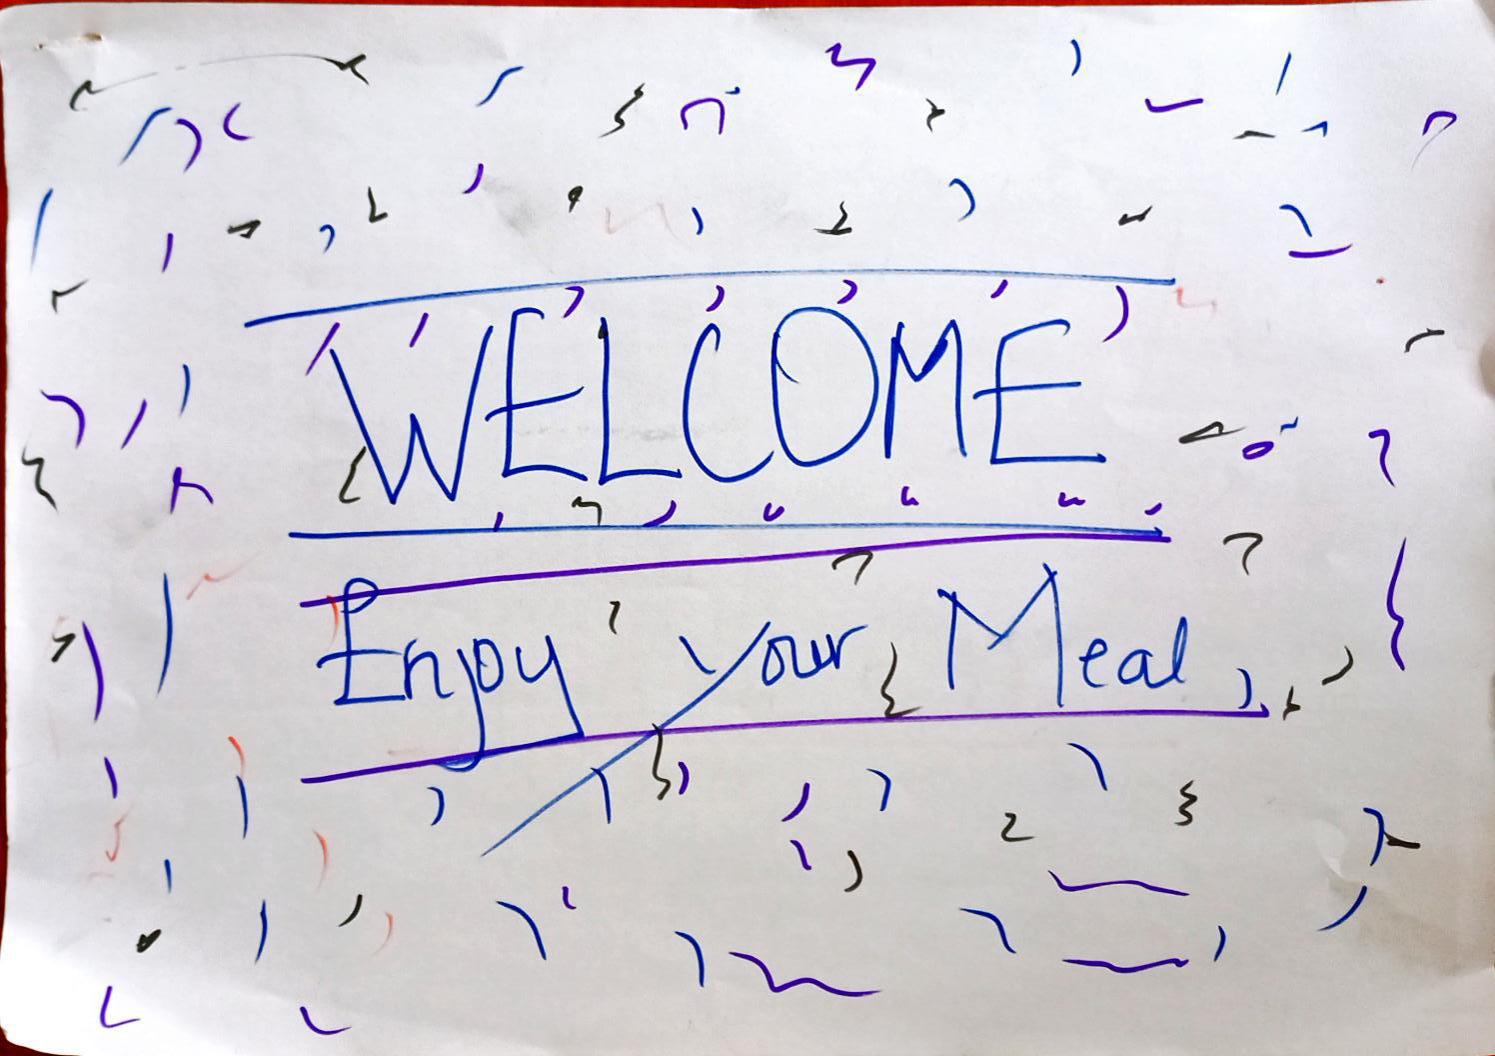 WELCOME
Enjoy your Meal